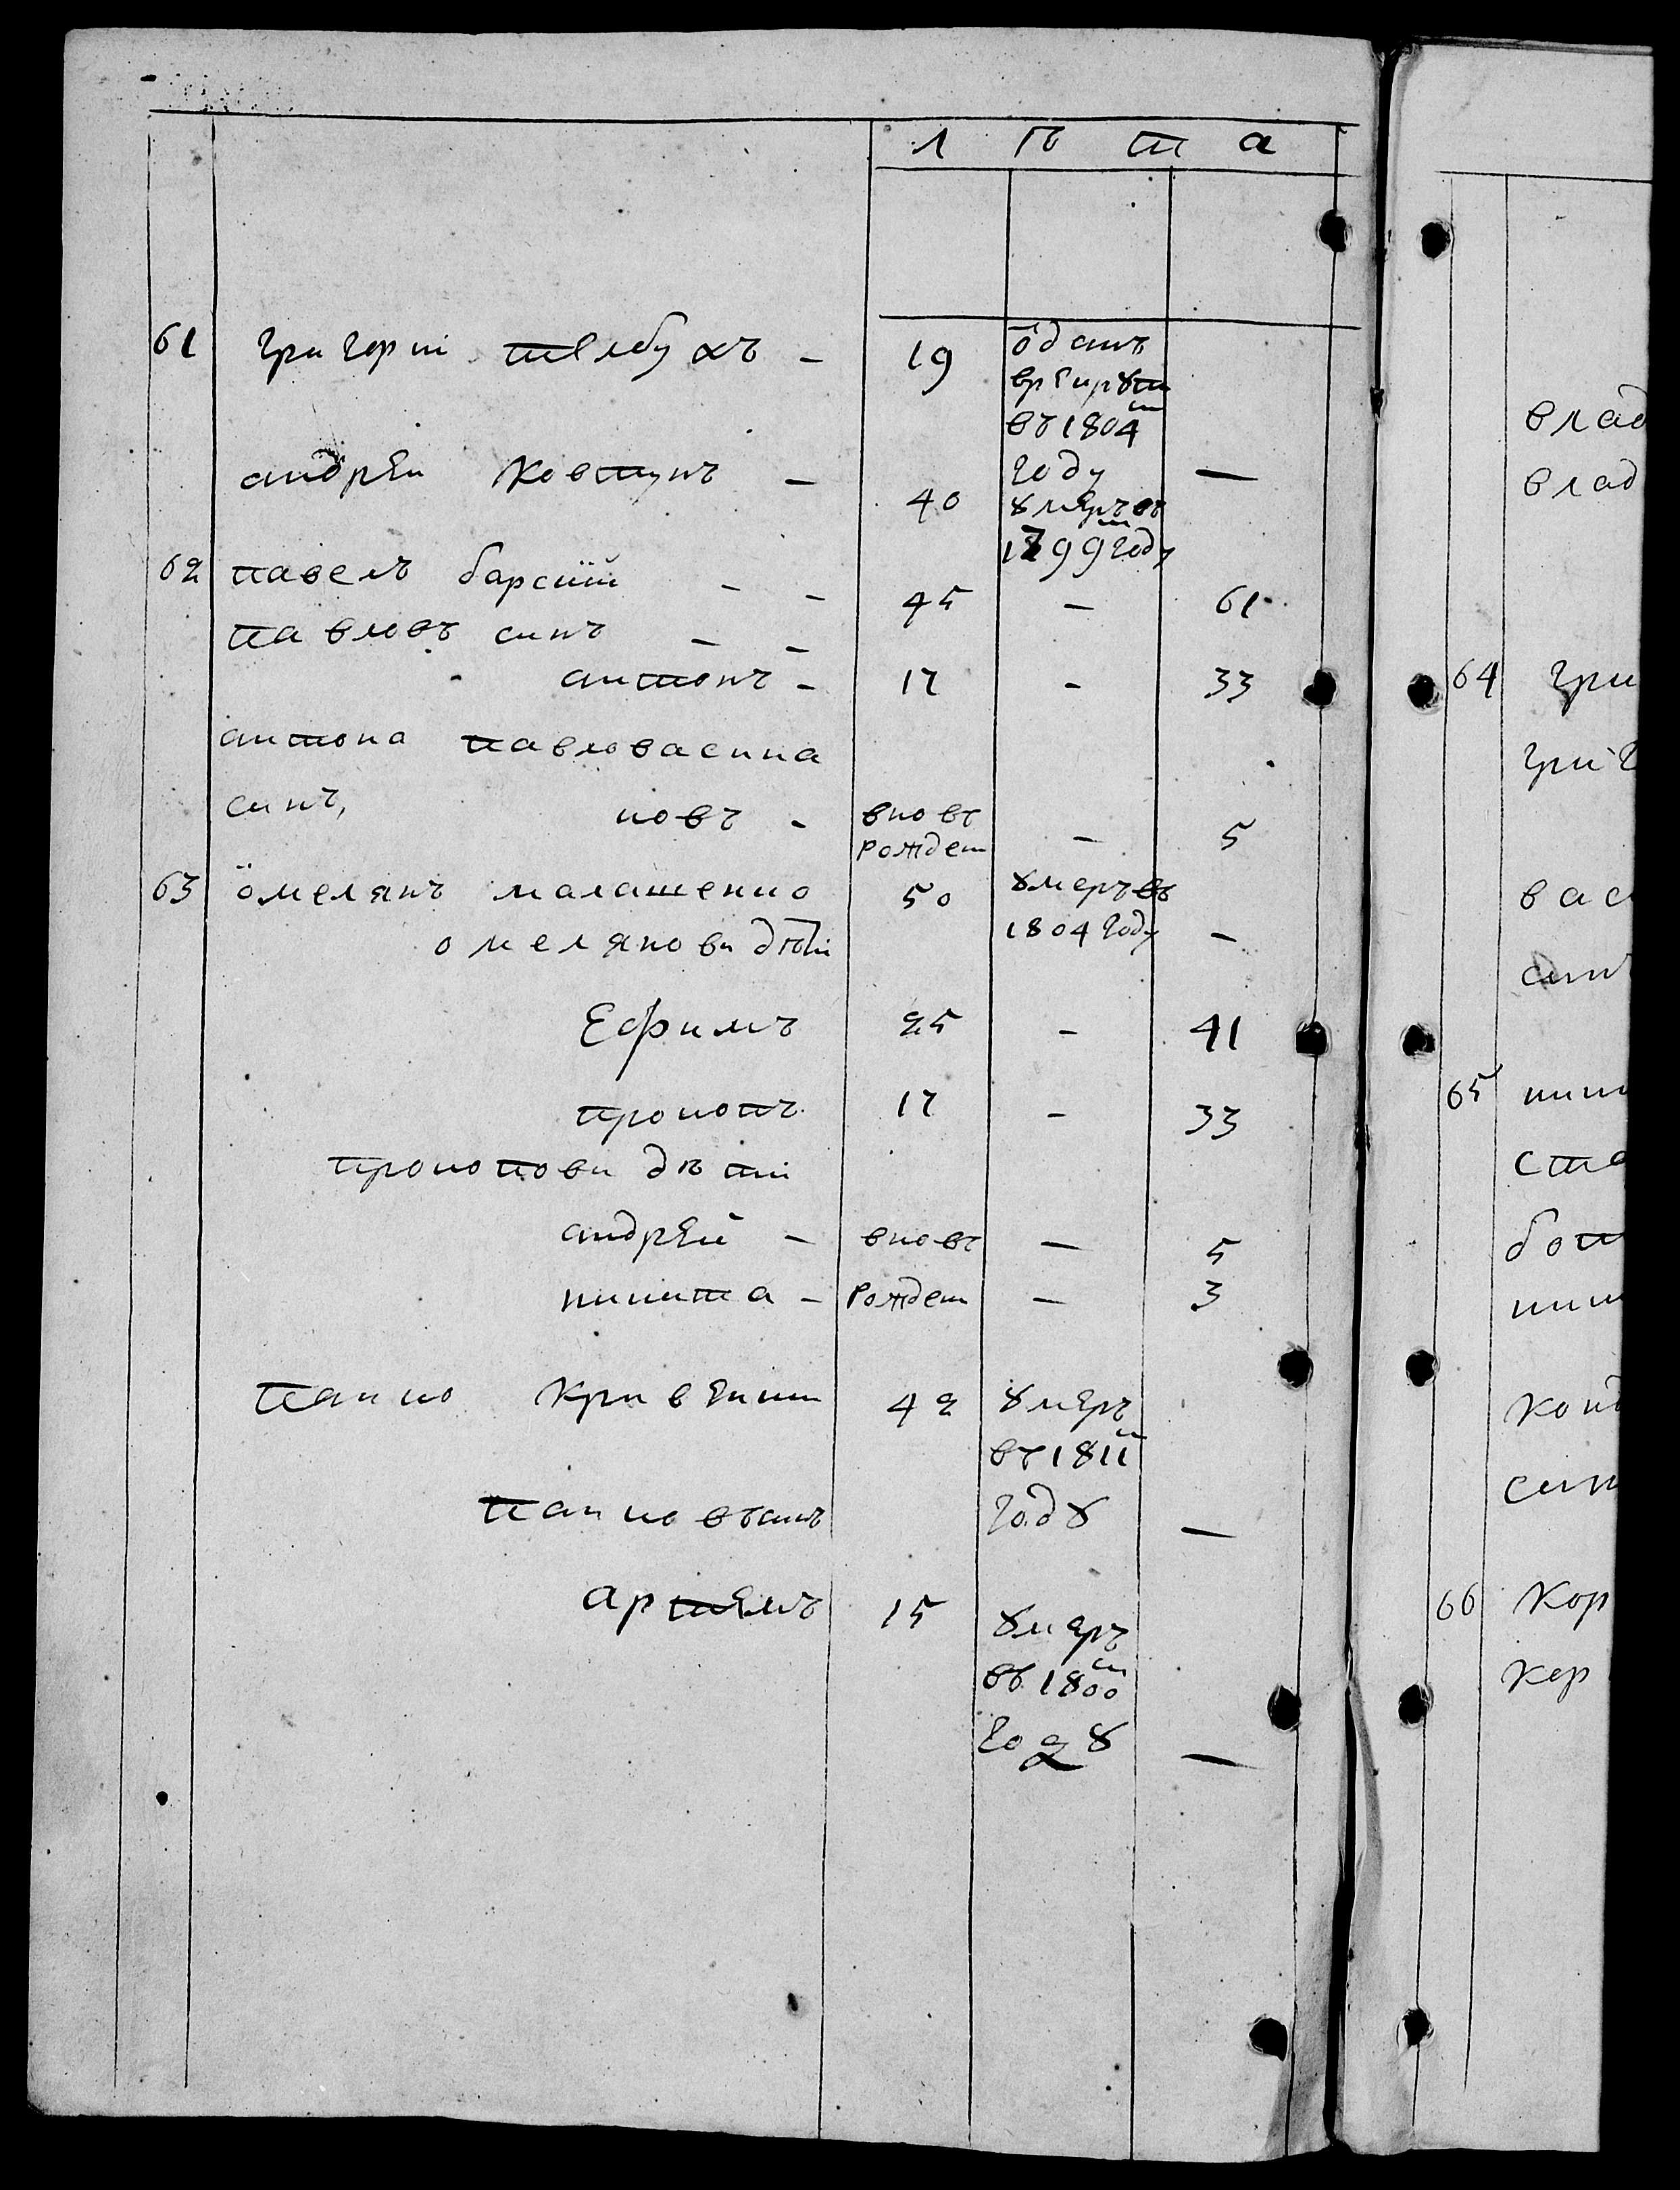 л ѣ т а
61 григорiи телбухъ – 19 оданъ
врекрути
въ 1804м
году —
андрѣи ковтунъ – 40 умеръ въ
1799м году
62 павелъ барскiй – – 45 – 61
павловъ синъ – –
антонъ – 17 – 33
антона павловасина
синъ, ковъ – вновь – 5
рожден
63 омелянъ малашенко 50 умеръ въ
1804 году –
омелянови дѣти
Ефимъ 25 – 41
прокопъ 17 – 33
прокопови дѣти
андрей – вновь — 5
никита – рожден — 3
панко кривенки 42 умеръ
въ 1811м
панковъ синъ году —
артемъ 15 умеръ
въ 1800м
году —
влад
влад
64 гри
григ
вас
синъ
65 ники
сте
бот
ники
конд
син
66 кор
кор